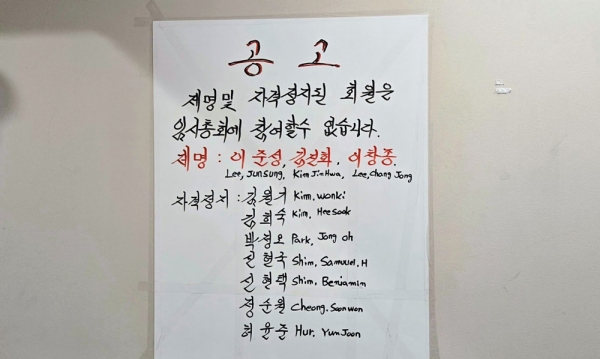 공 고
제명 및 자격정지된 회원은
임시총회에 참여할수 없습니다.
제명 : 이준성, 김진화, 이창종.
Lee, JunSung, Kim JinHwa, Lee, Chang Jong
자격정지 : 김원기 Kim, wonki
김희숙 Kim, Heesook
박종오 Park, Jong oh
심현국 Shim, Samuuel. H
심현택 Shim, Benjamin
정순원 Cheong, Soonwon
허윤준 Hur, YunJoon